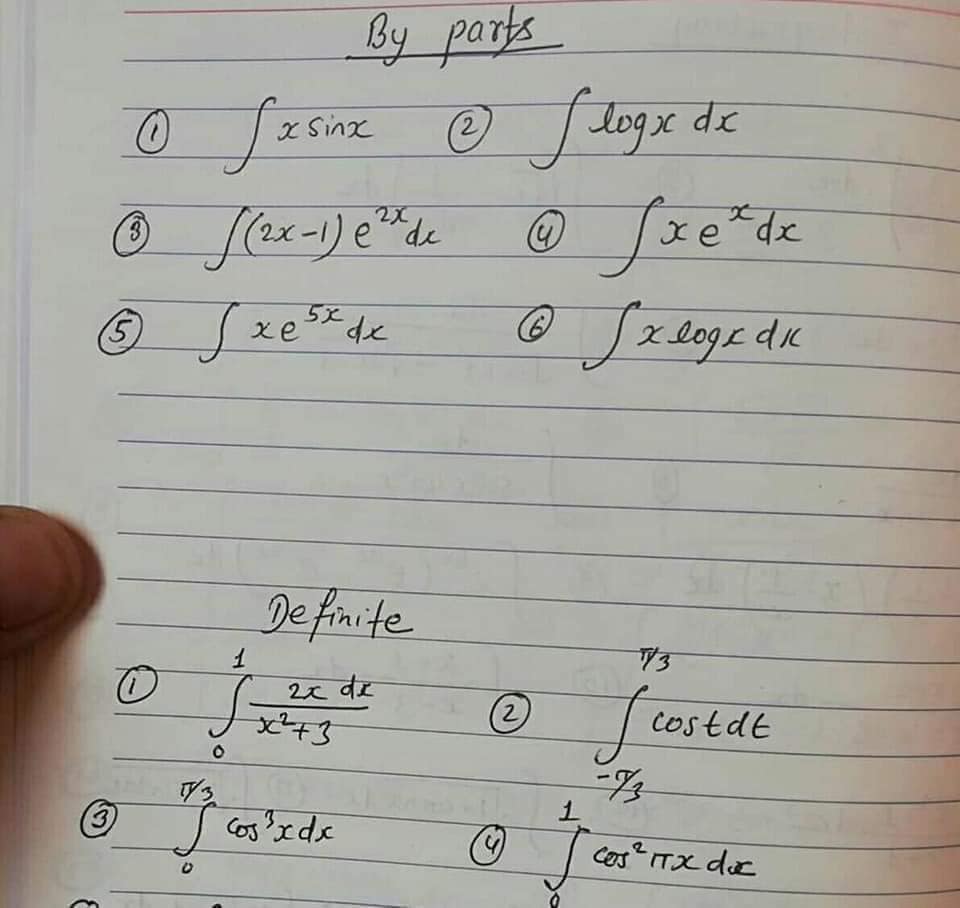 By parts
① ∫ x sinx ② ∫ logx dx
③ ∫(2x-1) e^2x dx ④ ∫ x e^x dx
⑤ ∫ xe^5x dx ⑥ ∫ x logx dx
Definite
① ∫₀¹ 2x dx / x²+3 ② ∫_{-π/3}^{π/3} cost dt
③ ∫₀^{π/3} cos³x dx ④ ∫₀¹ cos² πx dx